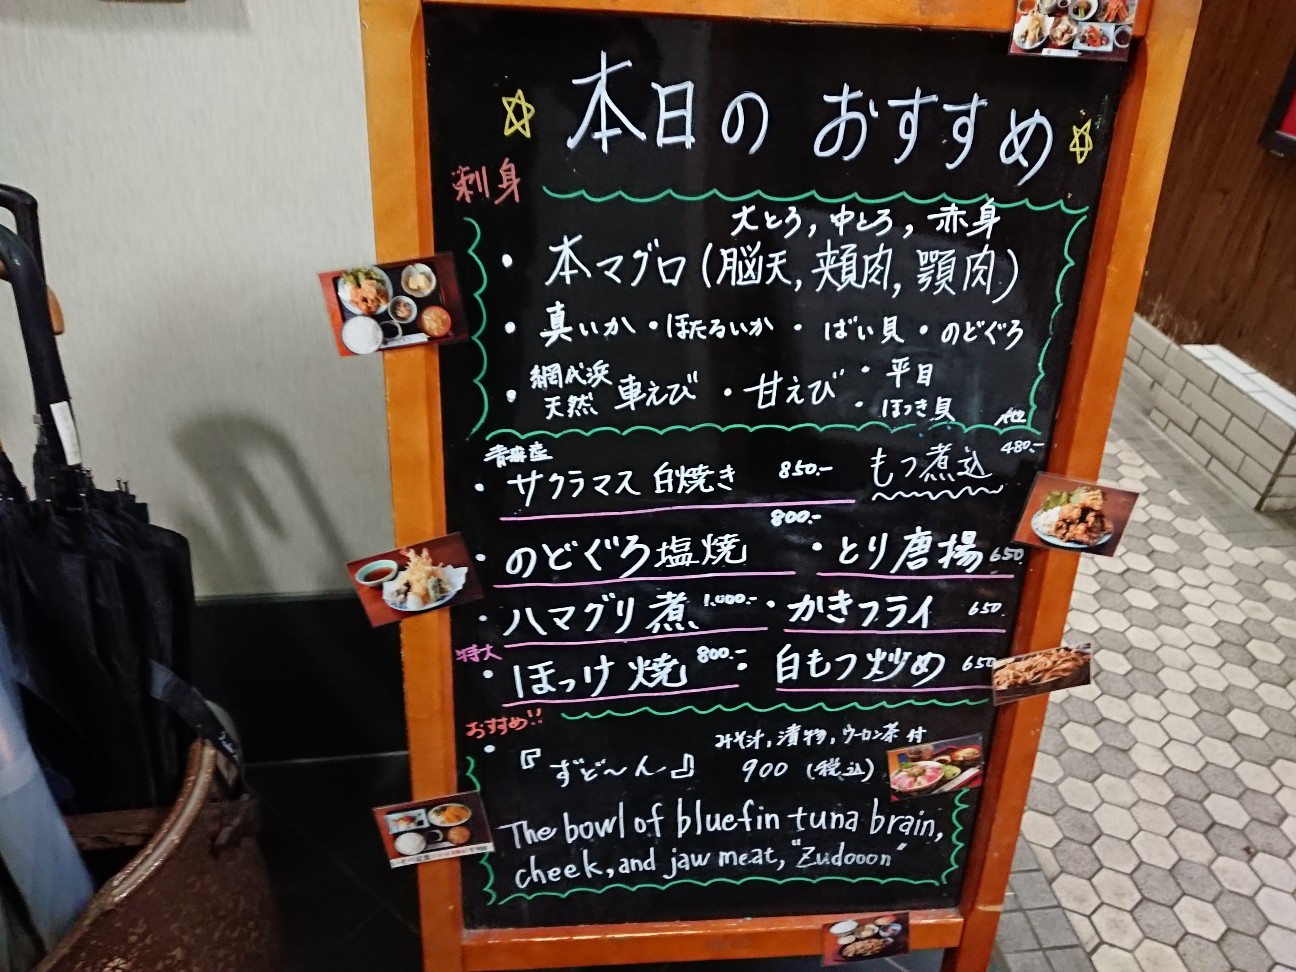 本日の おすすめ
刺身
大とろ, 中とろ, 赤身
・本マグロ (脳天, 頬肉, 顎肉)
・真いか ・ほたるいか ・ばい貝 ・のどぐろ
・網代浜 天然 車えび ・甘えび ・平目
・ほっき貝 他
青森産
・サクラマス 白焼き 850.- もつ煮込 480.-
・のどぐろ塩焼 800.- ・とり唐揚 650
・ハマグリ煮 1,000.- ・かきフライ 650.
特大
・ほっけ焼 800.- ・白もつ炒め 650
おすすめ!!
・『ずど〜ん』 みそ汁, 漬物, ウーロン茶 付
900 (税込)
The bowl of bluefin tuna brain,
cheek, and jaw meat, "Zudooon"